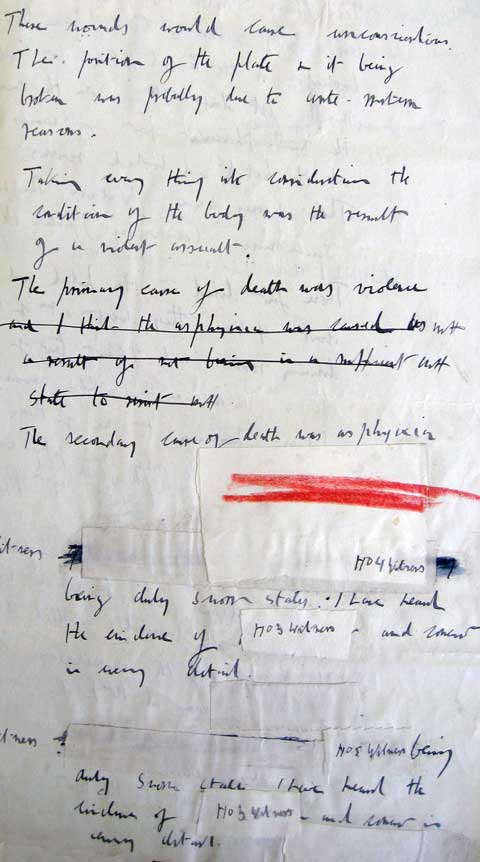 These wounds would cause unconsciousness.
The position of the plate & it being
broken was probably due to ante-mortem
reasons.
Taking every thing into consideration the
condition of the body was the result
of a violent assault.
The primary cause of death was violence
and I think the asphyxia was caused as
a result of not being in a sufficient
state to resist
The secondary cause of death was asphyxia
itness
No 4 Witness
being duly sworn states: I have heard
the evidence of No 3 Witness and concur
in every detail.
tness
No 5 Witness being
duly sworn states I have heard the
evidence of No 3 Witness and concur in
every detail.